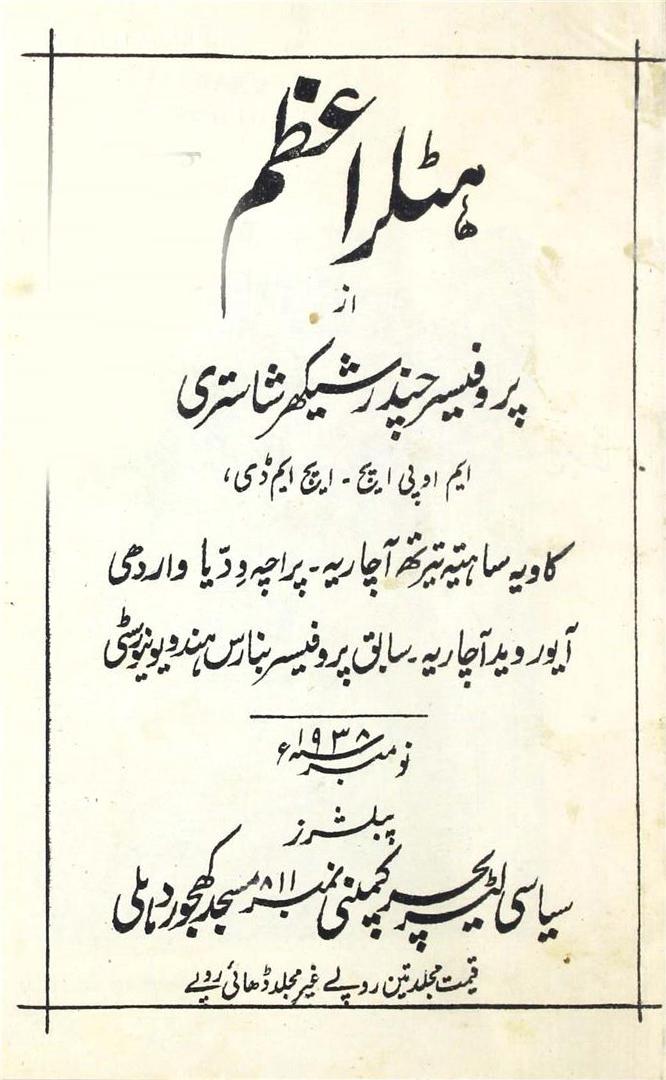 ہٹلر اعظم
از
پروفیسر چندر شیکھر شاستری
ایم او پی ایچ - ایچ ایم ڈی،
کاویہ ساہتیہ تیرتھ آچاریہ - پراچیہ ودّیا واردھی
آیور وید آچاریہ - سابق پروفیسر بنارس ہندو یونیورسٹی
نومبر ۱۹۳۸ء
پبلشرز
سیاسی لٹریچر کمپنی نمبر ۸۱۱ مسجد کھجور دہلی
قیمت مجلد تین روپے غیر مجلد ڈھائی روپے